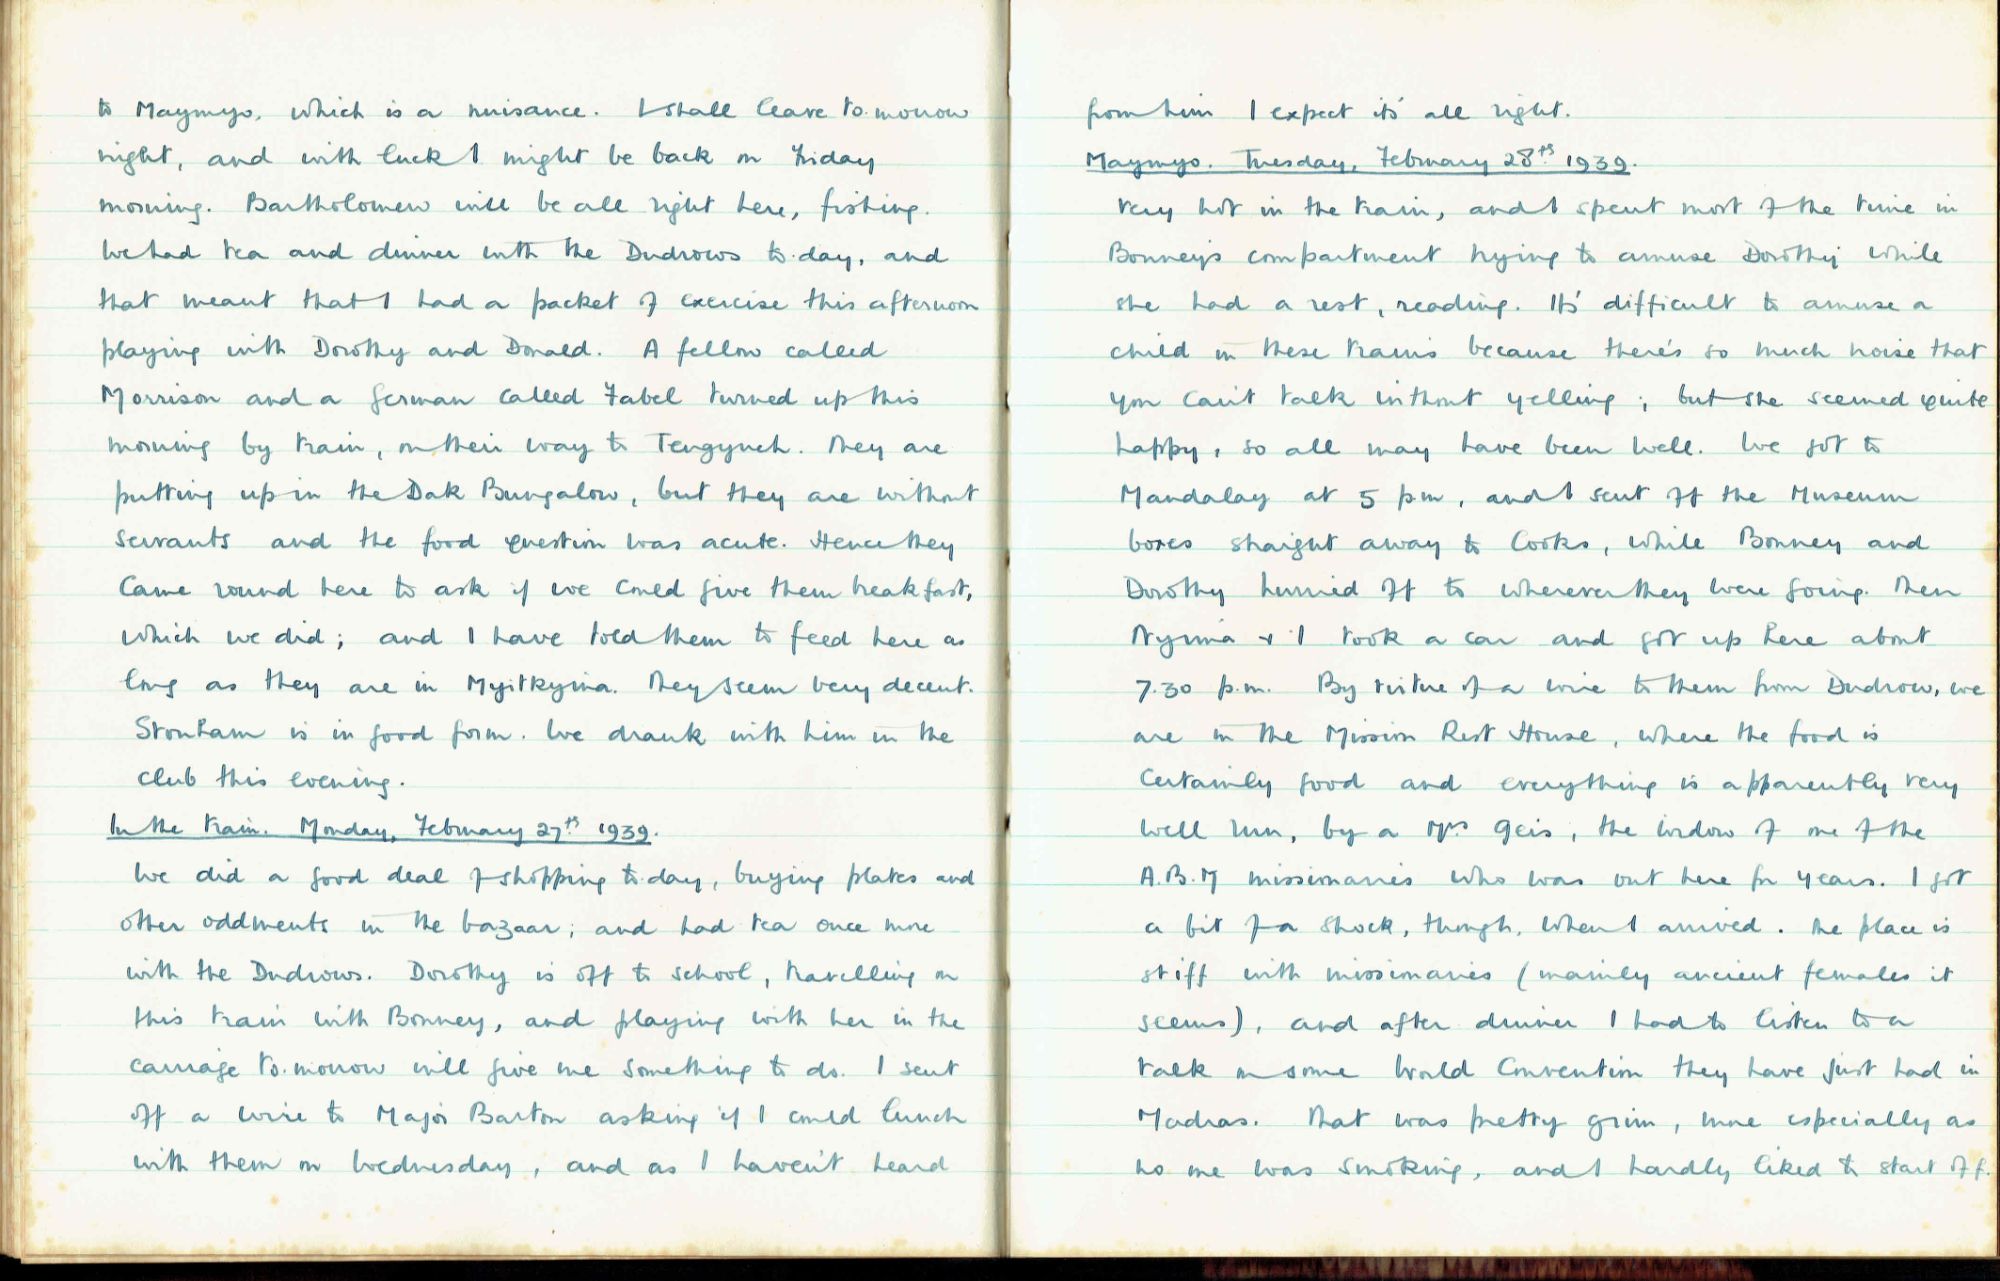 to Maymyo, which is a nuisance. I shall leave to-morrow
night, and with luck I might be back on Friday
morning. Bartholomew will be all right here, fishing.
We had tea and dinner with the Dudrows to-day, and
that meant that I had a packet of exercise this afternoon
playing with Dorothy and Donald. A fellow called
Morrison and a German called Fabel turned up this
morning by train, on their way to Tengyueh. They are
putting up in the Dak Bungalow, but they are without
servants and the food question was acute. Hence they
came round here to ask if we could give them breakfast,
which we did; and I have told them to feed here as
long as they are in Myitkyina. They seem very decent.
Stonham is in good form. We drank with him in the
club this evening.
In the train. Monday, February 27th 1939.
We did a good deal of shopping to-day, buying plates and
other oddments in the bazaar; and had tea once more
with the Dudrows. Dorothy is off to school, travelling on
this train with Bonney, and playing with her in the
carriage to-morrow will give me something to do. I sent
off a wire to Major Barton asking if I could lunch
with them on Wednesday, and as I haven't heard
from him I expect it's all right.
Maymyo. Tuesday, February 28th 1939.
Very hot in the train, and I spent most of the time in
Bonney's compartment trying to amuse Dorothy while
she had a rest, reading. It's difficult to amuse a
child in these trains because there's so much noise that
you can't talk without yelling; but she seemed quite
happy, so all may have been well. We got to
Mandalay at 5 pm, and I sent off the Museum
boxes straight away to Cooks, while Bonney and
Dorothy hurried off to wherever they were going. Then
Nyima & I took a car and got up here about
7.30 p.m. By virtue of a wire to them from Dudrow, we
are in the Mission Rest House, where the food is
certainly good and everything is apparently very
well run, by a Mrs Geis, the widow of one of the
A.B.M missionaries who was out here for years. I got
a bit of a shock, though, when I arrived. The place is
stiff with missionaries (mainly ancient females it
seems), and after dinner I had to listen to a
talk on some World Convention they have just had in
Madras. That was pretty grim, more especially as
no one was smoking, and I hardly liked to start off.